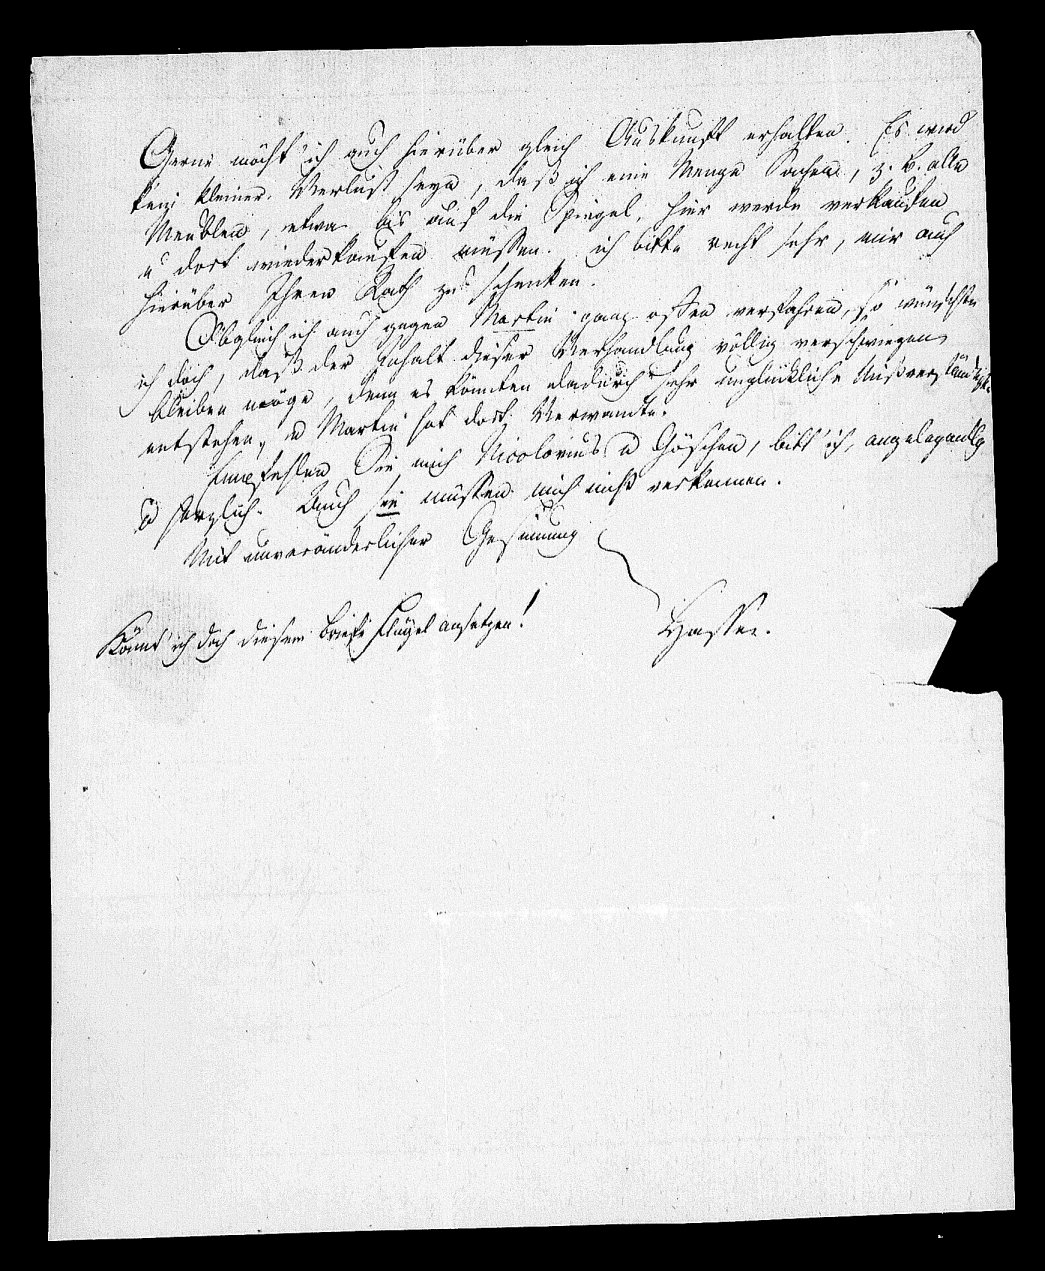 Gerne möcht' ich auch hierüber gleich Auskunft erhalten. Es wird
kein kleiner Verlust seyn, daß ich eine Menge Sachen, z. B. alle
Meublen, etwa bis auf die Spiegel, hier werde verkaufen
u dort wiederkaufen müssen. ich bitte recht sehr, mir auch
hierüber Ihren Rath zu schenken.
Obgleich ich auch gegen Martin ganz offen verfahren, so wünschte
ich doch, daß der Inhalt dieser Verhandlung völlig verschwiegen
bleiben möge, denn es könnten dadurch sehr unglückliche Mißverständnisse
entstehen, u Martin hat dort Verwandte.
Empfehlen Sie mich Nicolovius u Göschen, bitt' ich, angelegentlich
u herzlich. Auch sie müssen mich nicht verkennen.
Mit unveränderlicher Gesinnung
Hasse.
Könnt' ich doch diesem Briefe Flügel ansetzen!